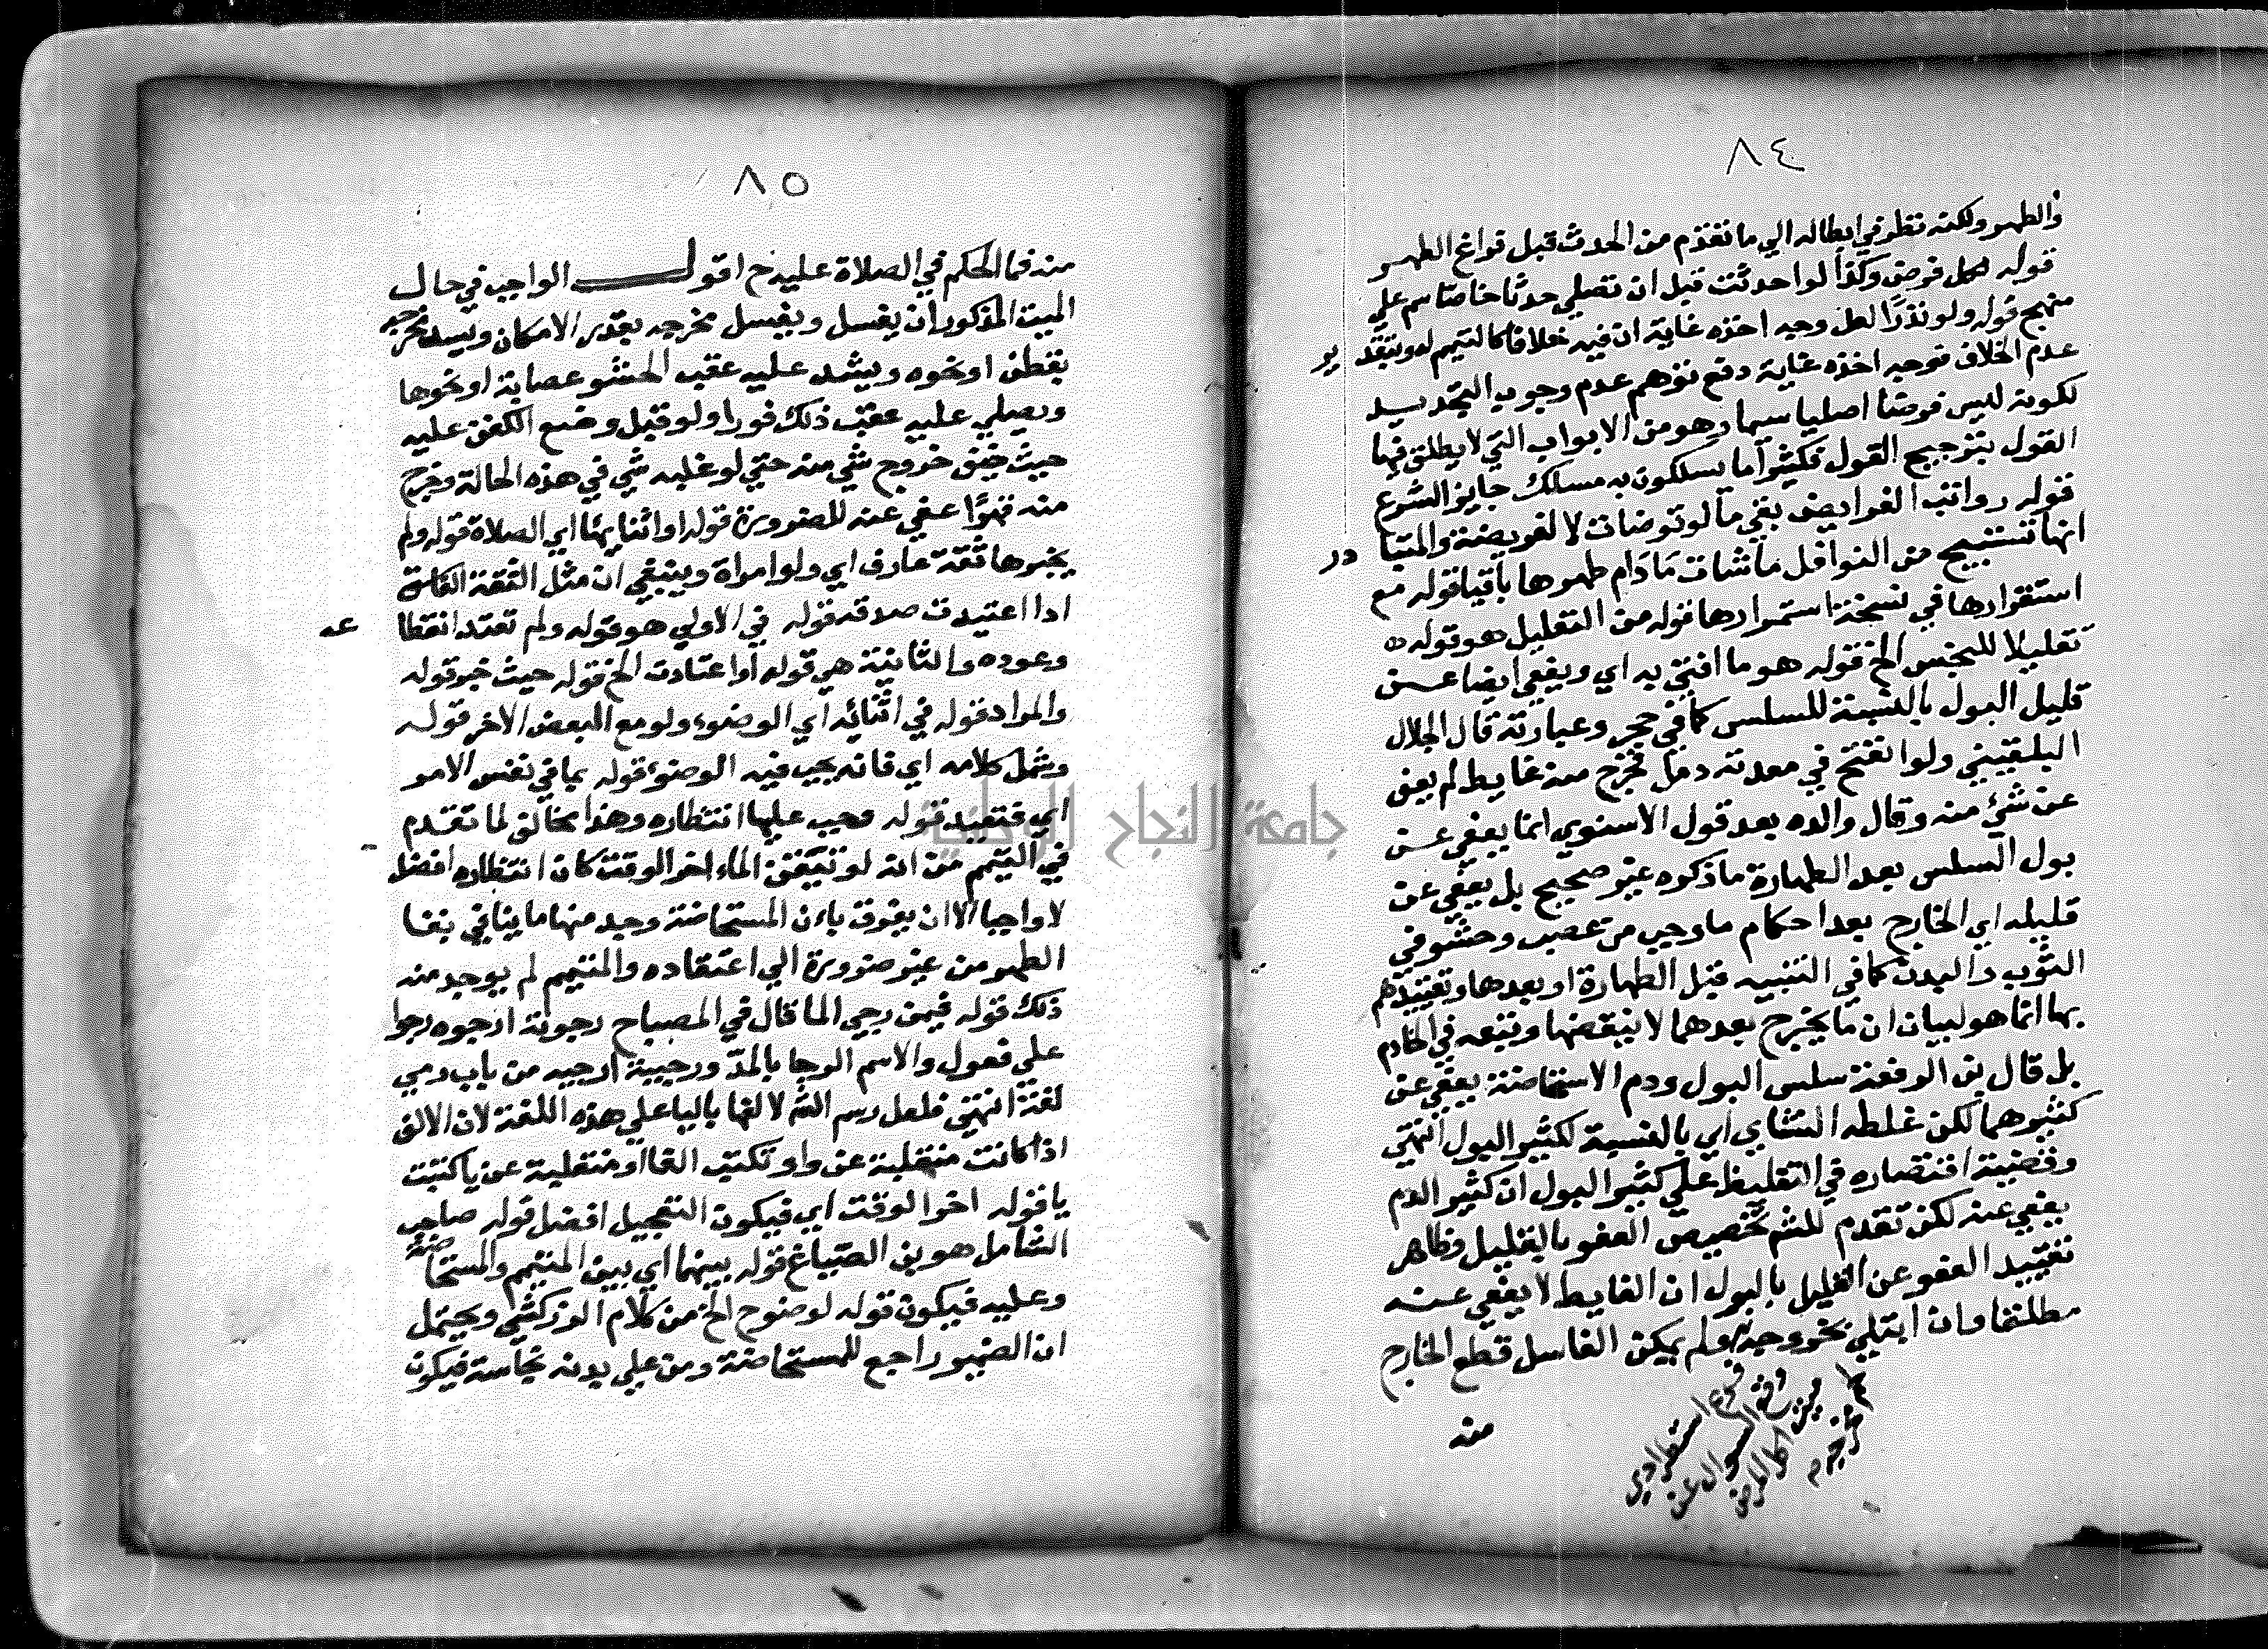 ٨٤
والطهر ولكنه نظر في ابطاله الي ما تقدم من الحدث قبل فراغ الطهر
قوله لكل فرض وكذا لو احدثت قبل ان تصلي حدثا خاصا سم علي
منهج قوله ولو نذرا لعل وجه اخذه غاية ان فيه خلافا كالتيمم له وبتقدير
عدم الخلاف فوجه اخذه غاية دفع توهم عدم وجوب التجديد
لكونه ليس فرضا اصليا سيما وهو من الابواب التي لا يطلق فيها
القول بترجيح القول فكثيرا ما يسلكون به مسلك جايز الشرع
قوله رواتب الفرايض بقي ما لو توضات لا لفريضة والمتبادر
انها تستبيح من النوافل ما شات ما دام طهرها باقيا قوله مع
استقرارها في نسخة استمرارها قوله من التعليل هو قوله
تقليلا للنجس الخ قوله هو ما افتي به اي ويعفي ايضا عن
قليل البول بالنسبة للسلس كما في حجر وعبارته قال الجلال
البلقيني ولو انفتح في معدته دمل فخرج منه غايط لم يعف
عن شئ منه وقال والده بعد قول الاسنوي انما يعفي عن
بول السلس بعد الطهارة ما ذكره غير صحيح بل يعفي عن
قليله اي الخارج بعد احكام ما وجب من عصب وحشو في
الثوب والبدن كما في التنبيه قبل الطهارة او بعدها وتقييدهم
بها انما هو لبيان ان ما يخرج بعدهما لا ينقضها وتبعه في الخادم
بل قال بن الرفعة سلس البول ودم الاستحاضة يعفي عن
كثيرهما لكن غلطه النشاي اي بالنسبة لكثير البول انتهي
وقضية اقتصاره في التغليظ علي كثير البول ان كثير الدم
يعفي عنه لكن تقدم للشم تخصيص العفو بالقليل وظاهر
تقييد العفو عن القليل بالبول ان الغايط لا يعفي عنه
مطلقا فرع استطرادي وقع السؤال عن مات ابتلي بخروجه ولم يمكن الغاسل قطع الخارج
منه
٨٥
منه فما الحكم في الصلاة عليه ح اقول الواجب في حال
الميت المذكور ان يغسل ويغسل مخرجه بقدر الامكان ويسد مخرجه
بقطن او نحوه ويشد عليه عقب الحشو عصابة او نحوها
ويصلي عليه عقب ذلك فورا ولو قبل وضع الكفن عليه
حيث خيف خروج شي منه حتي لو غلبه شي في هذه الحالة وخرج
منه قهرا عفي عنه للضرورة قوله او اثنايها اي الصلاة قوله ولم
يخبرها ثقة عارف اي ولو امراة وينبغي ان مثل الثقة الفاسق
اذا اعتيدت صدقه قوله في الاولي هو قوله ولم تعتد انقطاعه
وعوده والثانية هي قوله او اعتادت الخ قوله حيث خبر قوله
والمراد قوله في اثنائه اي الوضوء ولو مع البعض الاخر قوله
وشمل كلامه اي فانه يجب فيه الوضوء قوله بما في نفس الامر
اي فتعيد قوله وجب عليها انتظاره وهذا يخالف لما تقدم
في التيمم من انه لو تيقن الماء اخر الوقت كان انتظاره افضل
لا واجبا الا ان يفرق بان المستحاضة وجد منها ما ينافي بقا
الطهر من غير ضرورة الي اعتقاده والمتيمم لم يوجد منه
ذلك قوله فيمن رجي الما قال في المصباح رجوته ارجوه رجوا
علي فعول والاسم الرجا بالمد ورجيته ارجيه من باب رمي
لغة انتهي فلعل رسم الشم لالفها باليا علي هذه اللغة لان الالف
اذا كانت منقلبة عن واو تكتب الفا او منقلبة عن يا كتبت
يا قوله اخر الوقت اي فيكون التعجيل افضل قوله صاحب
الشامل هو بن الصباغ قوله بينهما اي بين المتيمم والمستحاضة
وعليه فيكون قوله لوضوح الخ من كلام الزركشي ويحتمل
ان الضمير راجع للمستحاضة ومن علي بدنه نجاسة فيكون
جامعة النجاح الوطنية